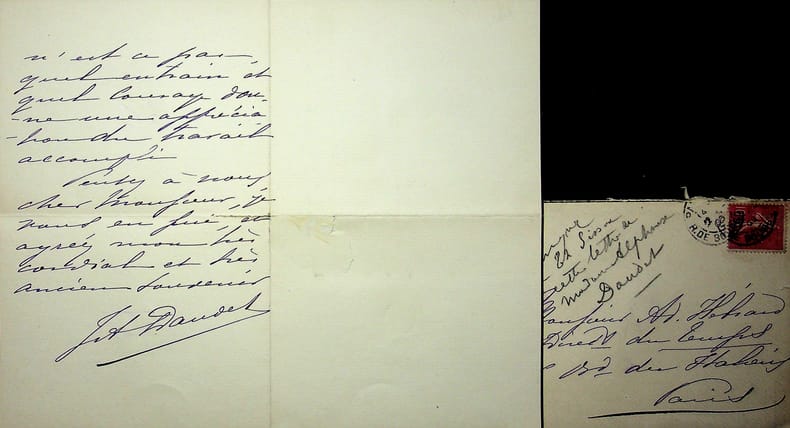 n'est ce pas
quel entrain et
quel courage don-
-ne une apprécia
-tion du travail
accompli
Pensez à nous
cher Monsieur, je
vous en prie, et
agréez mon très
cordial et très
ancien souvenir
JA Daudet
cette lettre de
Madame Alphonse
Daudet
Monsieur Ad. Hébrard
Direct du Temps
Bd des Italiens
Paris